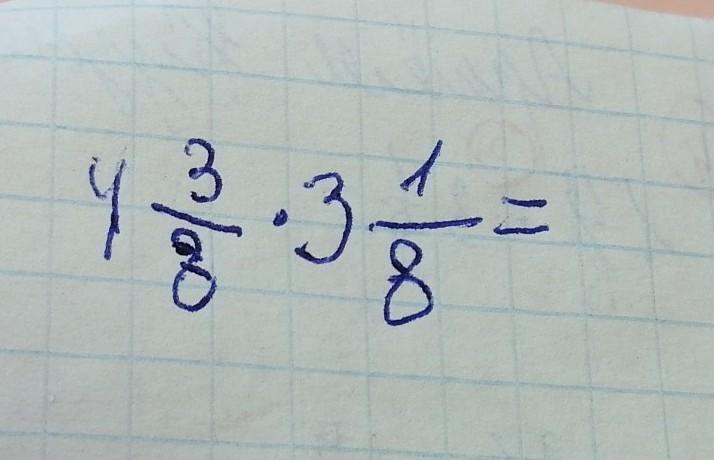 4 3/8 · 3 1/8 =